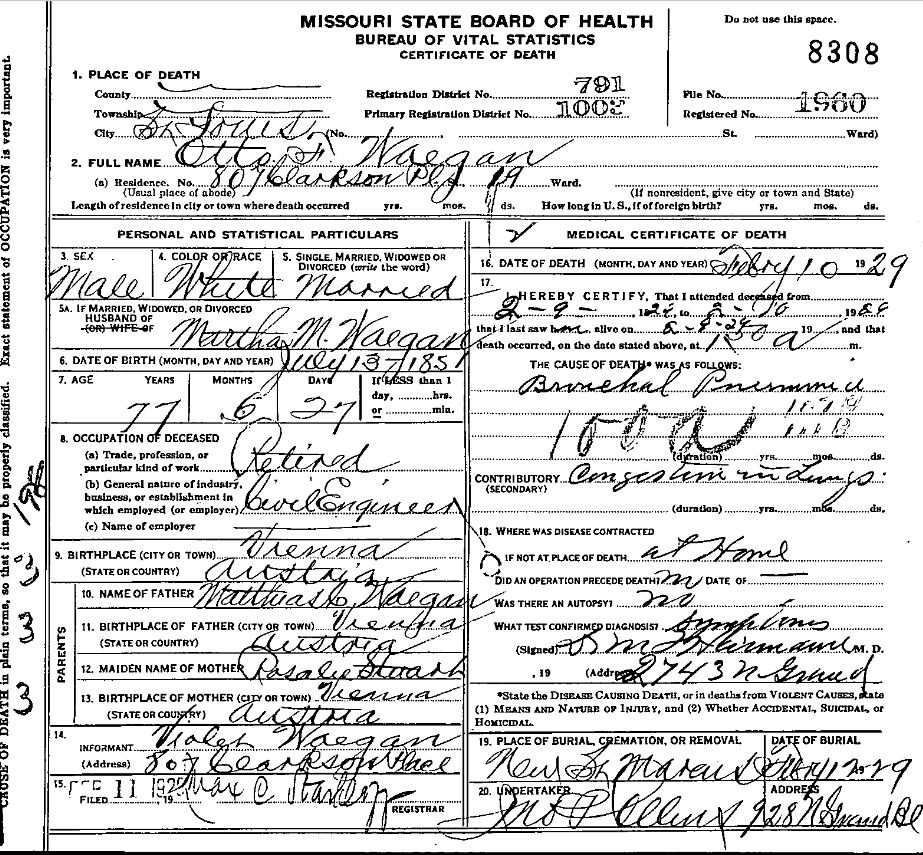 MISSOURI STATE BOARD OF HEALTH
BUREAU OF VITAL STATISTICS
CERTIFICATE OF DEATH
Do not use this space.
8308
1. PLACE OF DEATH
County
Registration District No. 791
File No.
Township
Primary Registration District No. 1003
Registered No. 1960
City St. Louis, (No. St. Ward)
2. FULL NAME Otto F. Waegan
(a) Residence. No. 807 Clarkson Pl 19 Ward.
(Usual place of abode) (If nonresident, give city or town and State)
Length of residence in city or town where death occurred yrs. mos. ds. How long in U. S., if of foreign birth? yrs. mos. ds.
PERSONAL AND STATISTICAL PARTICULARS
3. SEX 4. COLOR OR RACE 5. SINGLE, MARRIED, WIDOWED OR
DIVORCED (write the word)
Male White Married
5A. IF MARRIED, WIDOWED, OR DIVORCED
HUSBAND OF
(OR) WIFE OF Martha M. Waegan
6. DATE OF BIRTH (MONTH, DAY AND YEAR) July 13-1851
7. AGE YEARS MONTHS DAYS If LESS than 1
day, hrs.
or min.
77 6 27
8. OCCUPATION OF DECEASED
(a) Trade, profession, or
particular kind of work Retired
(b) General nature of industry,
business, or establishment in
which employed (or employer) Civil Engineer
(c) Name of employer
9. BIRTHPLACE (CITY OR TOWN) Vienna
(STATE OR COUNTRY) Austria
PARENTS
10. NAME OF FATHER Matthias Waegan
11. BIRTHPLACE OF FATHER (CITY OR TOWN) Vienna
(STATE OR COUNTRY) Austria
12. MAIDEN NAME OF MOTHER Rosalie Stuark
13. BIRTHPLACE OF MOTHER (CITY OR TOWN) Vienna
(STATE OR COUNTRY) Austria
14.
INFORMANT Violet Waegan
(Address) 807 Clarkson Place
15. FEB 11 1929
FILED 19 Max C Starkloff
REGISTRAR
MEDICAL CERTIFICATE OF DEATH
16. DATE OF DEATH (MONTH, DAY AND YEAR) Febry 10 1929
17.
I HEREBY CERTIFY, That I attended deceased from
2-9-, 1929, to 2-10, 1929
that I last saw him alive on 2-9-29 19, and that
death occurred, on the date stated above, at 130 a m.
THE CAUSE OF DEATH* WAS AS FOLLOWS:
Bronchal Pneumonia
100a
(duration) yrs. mos. ds.
CONTRIBUTORY Congestion in Lungs.
(SECONDARY)
(duration) yrs. mos. ds.
18. WHERE WAS DISEASE CONTRACTED
IF NOT AT PLACE OF DEATH. at Home
DID AN OPERATION PRECEDE DEATH? no DATE OF
WAS THERE AN AUTOPSY? no
WHAT TEST CONFIRMED DIAGNOSIS? Symptoms
(Signed) M. D.
, 19 (Address) 2743 N Grand
*State the DISEASE CAUSING DEATH, or in deaths from VIOLENT CAUSES, state
(1) MEANS AND NATURE OF INJURY, and (2) Whether ACCIDENTAL, SUICIDAL, or
HOMICIDAL.
19. PLACE OF BURIAL, CREMATION, OR REMOVAL DATE OF BURIAL
New St. Marcus Febry 12 29
20. UNDERTAKER ADDRESS
Jno P Collins 928 N Grand Bl
CAUSE OF DEATH in plain terms, so that it may be properly classified. Exact statement of OCCUPATION is very important.